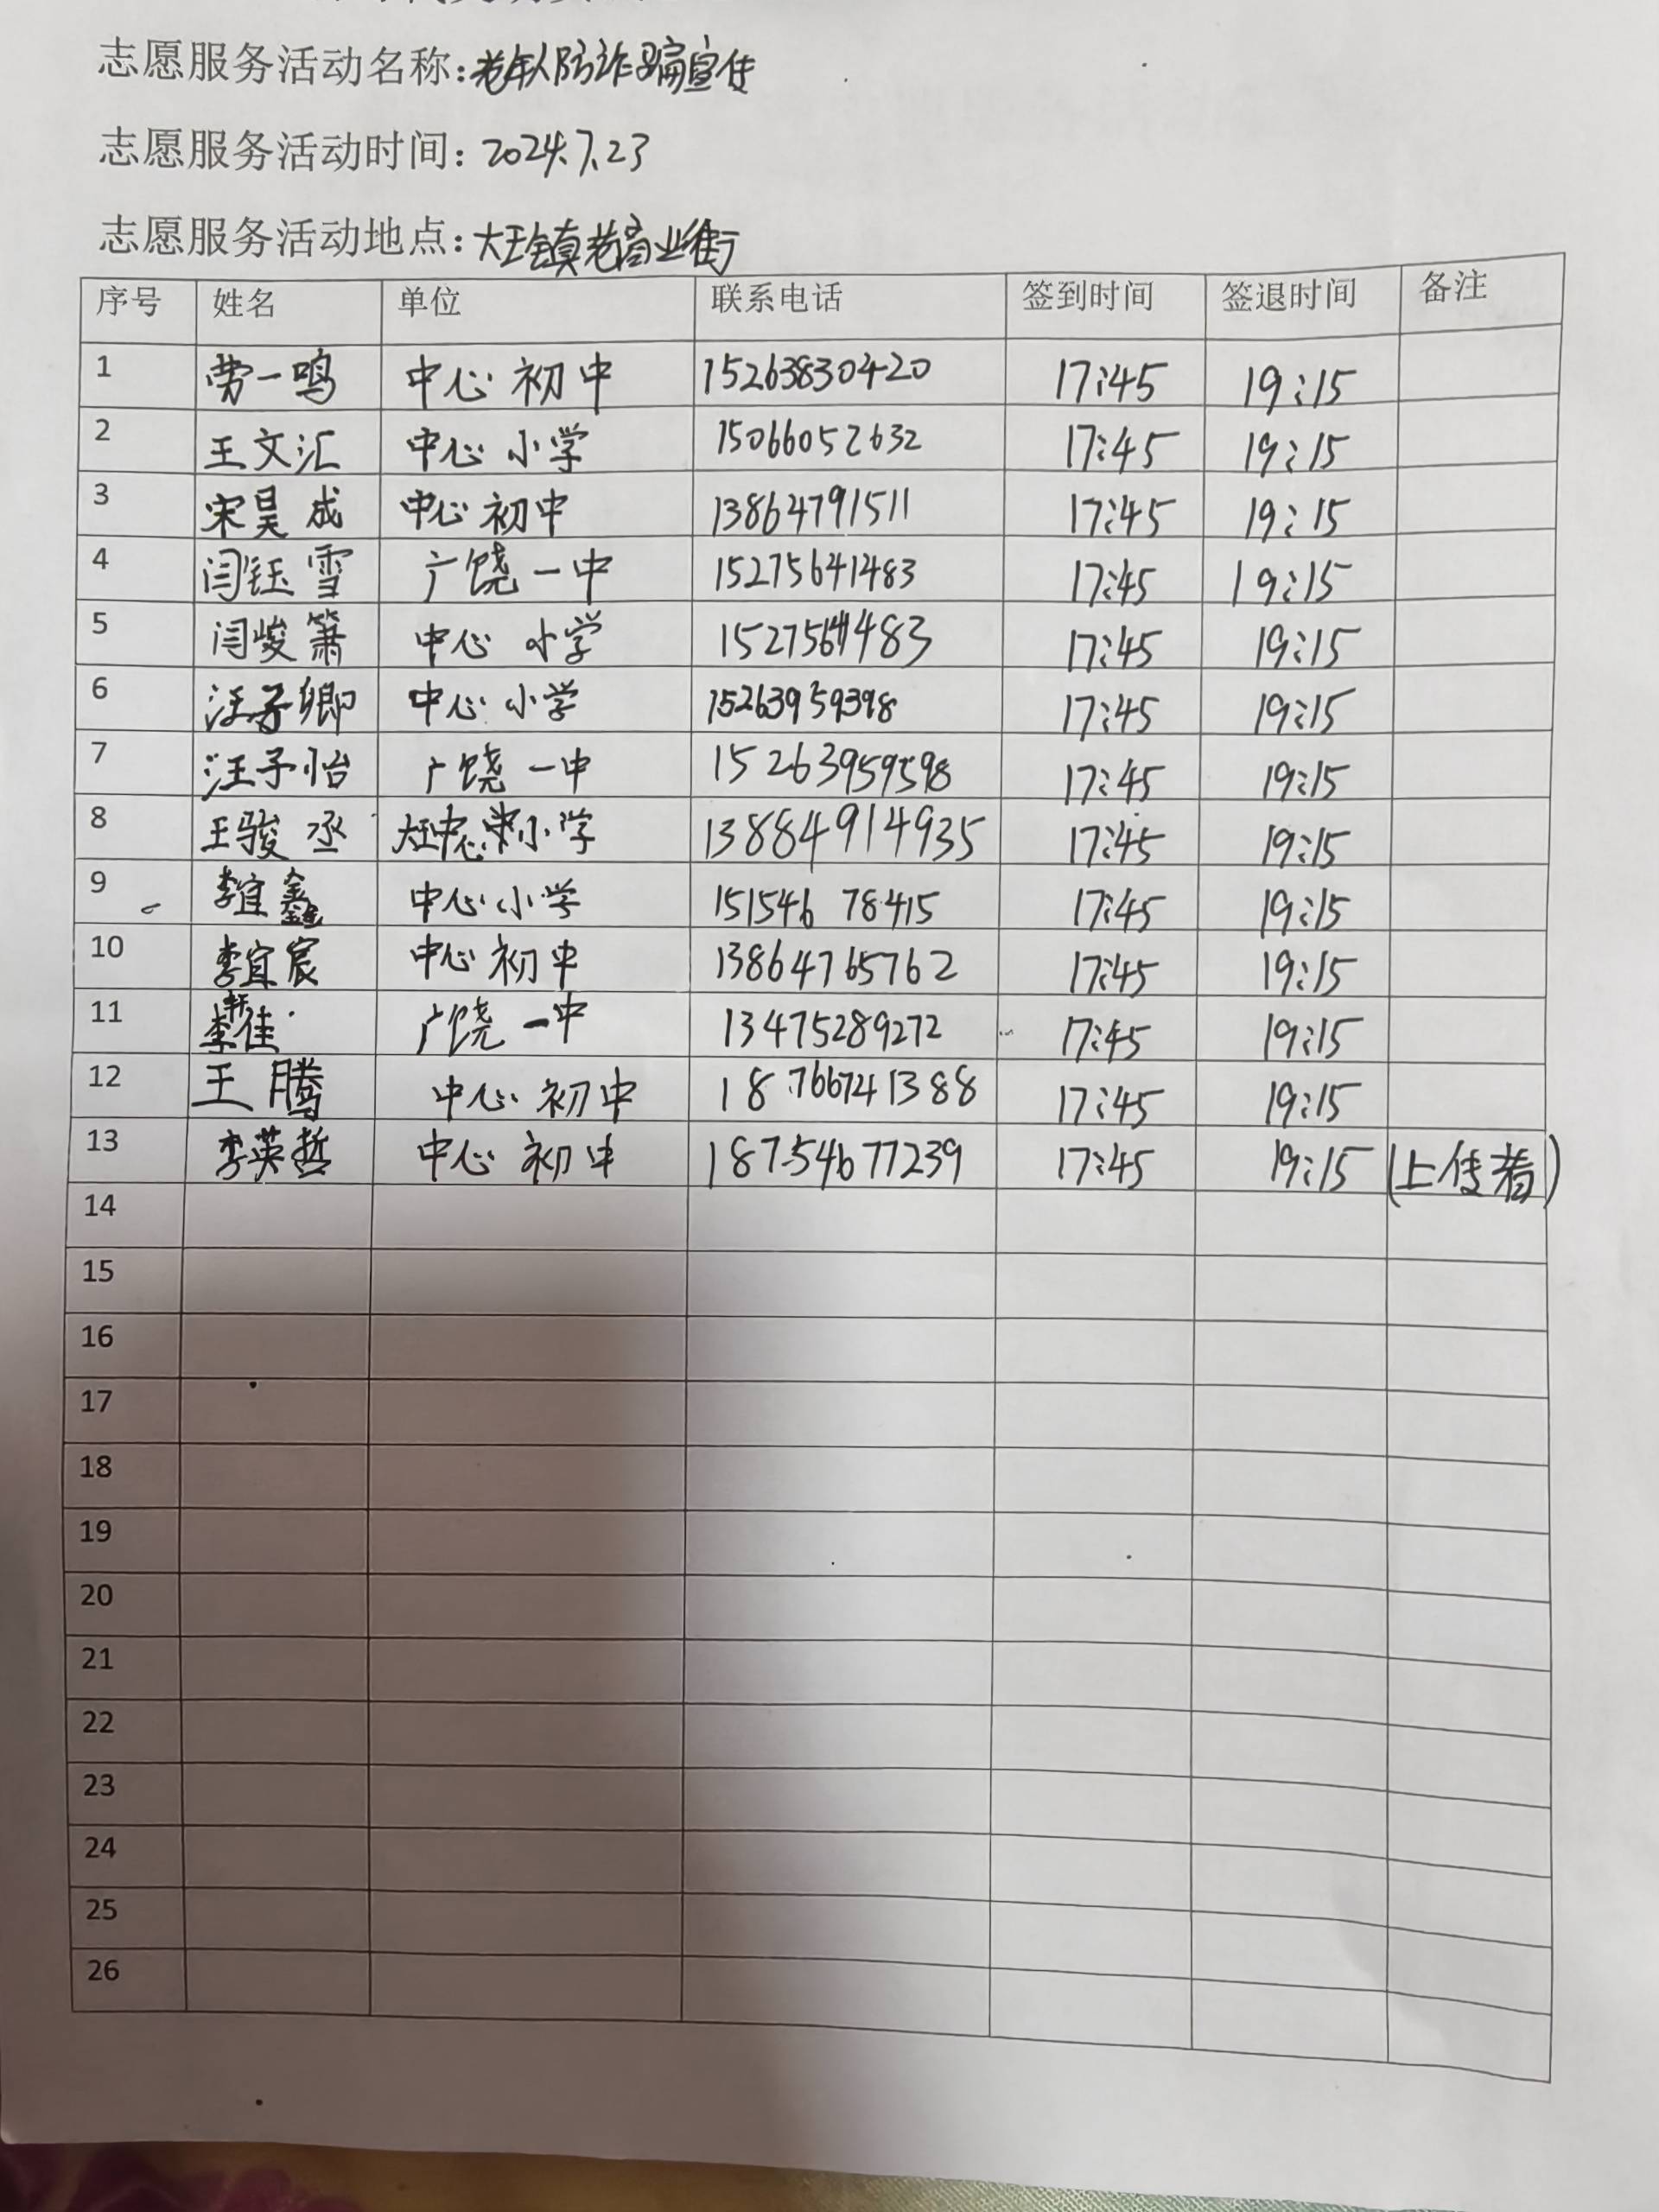 志愿服务活动名称:老年人防诈骗宣传
志愿服务活动时间: 2024.7.23
志愿服务活动地点:大王镇老商业街
序号 姓名 单位 联系电话 签到时间 签退时间 备注
1 劳一鸣 中心初中 15263830420 17:45 19:15
2 王文汇 中心小学 15066052632 17:45 19:15
3 宋昊成 中心初中 13864791511 17:45 19:15
4 闫钰雪 广饶一中 15275641483 17:45 19:15
5 闫峻箫 中心小学 15275641483 17:45 19:15
6 汪子卿 中心小学 17:45 19:15
7 汪子怡 广饶一中 15263959598 17:45 19:15
8 王骏丞 大王中心小学 13884914935 17:45 19:15
9 李宜鑫 中心小学 15154678415 17:45 19:15
10 李宜宸 中心初中 13864765762 17:45 19:15
11 李佳 广饶一中 13475289272 17:45 19:15
12 王腾 中心初中 18766741388 17:45 19:15
13 李英哲 中心初中 18754677239 17:45 19:15 (上传着)
14
15
16
17
18
19
20
21
22
23
24
25
26